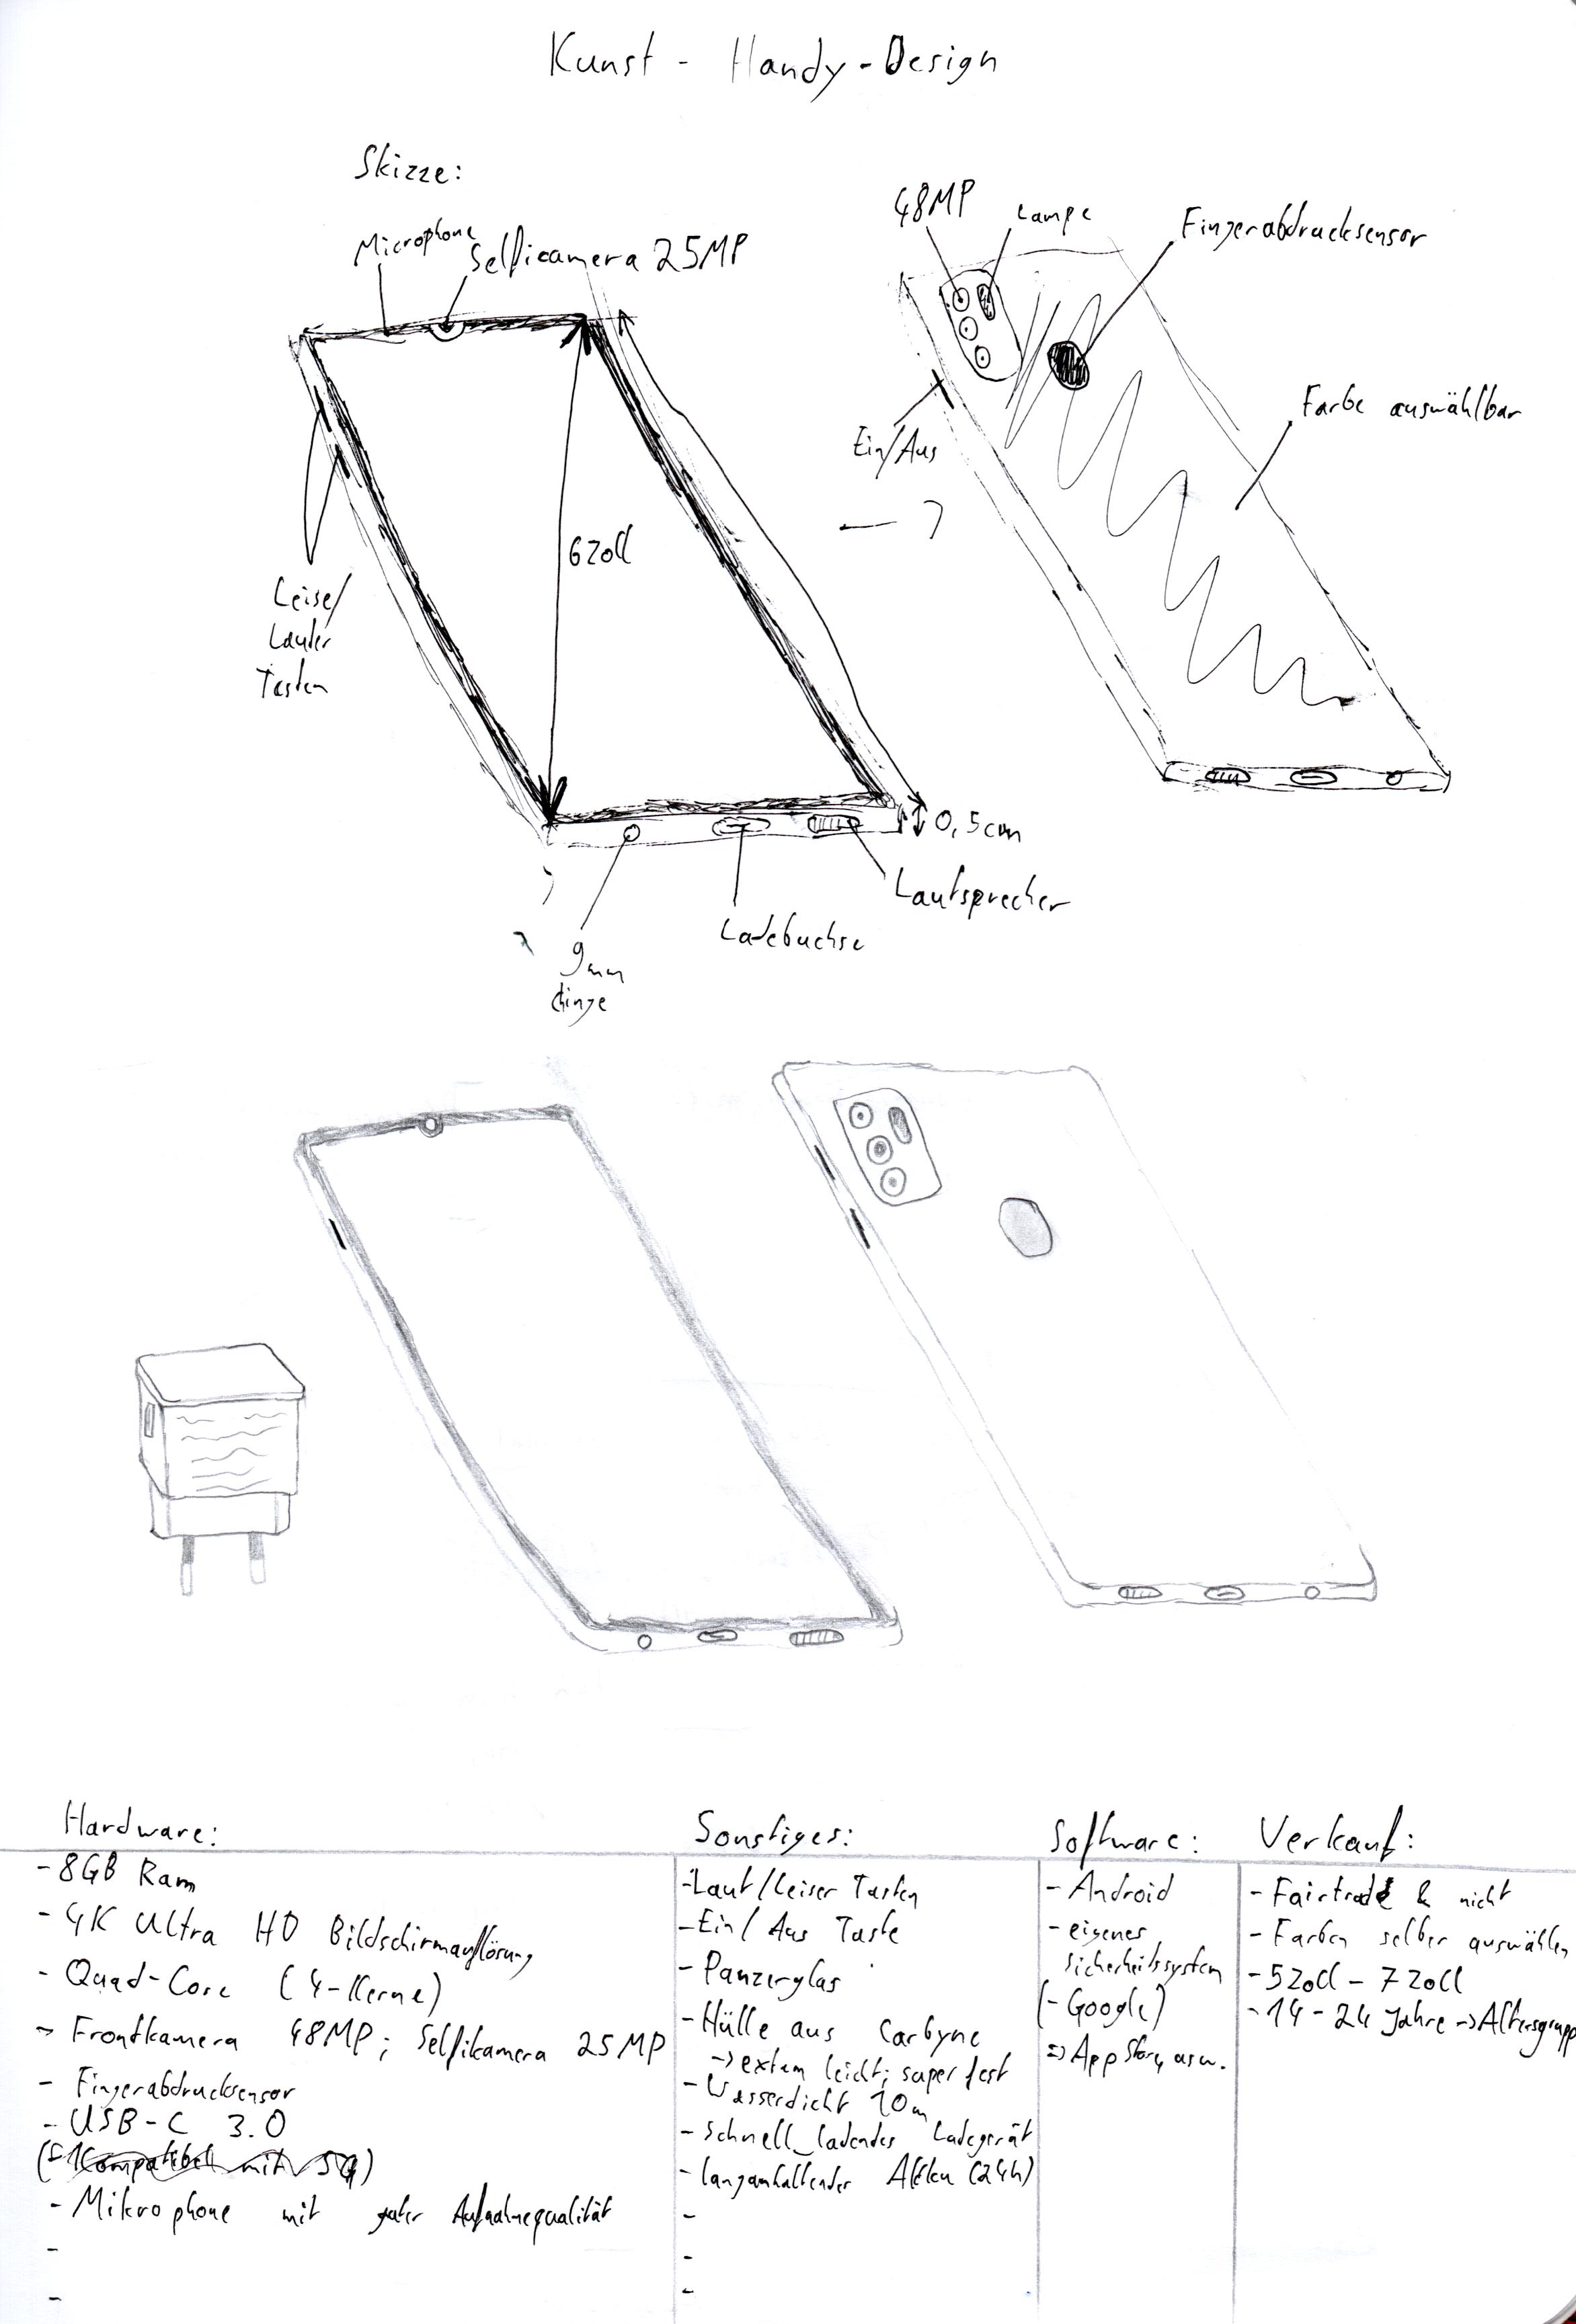 Kunst - Handy-Design
Skizze:
Microphone
Selficamera 25MP
48MP
Lampe
Fingerabdrucksensor
Ein/Aus
Farbe auswählbar
6 Zoll
Leise/
Lauter
Tasten
0,5cm
Lautsprecher
Ladebuchse
9mm
Hardware:
- 8GB Ram
- 4K Ultra HD Bildschirmauflösung
- Quad-Core (4-Kerne)
- Frontkamera 48MP; Selfikamera 25MP
- Fingerabdrucksensor
- USB-C 3.0
(- Kompatibel mit 5G)
- Mikrophone mit guter Aufnahmequalität
-
-
Sonstiges:
- Laut/Leiser Tasten
- Ein/Aus Taste
- Panzerglas
- Hülle aus Carbyne
-> extem leicht; super fest
- Wasserdicht 10m
- Schnell_ladendes Ladegerät
- langanhaltender Akku (24h)
-
-
-
Software:
- Android
- eigenes
Sicherheitssystem
(- Google)
=> App Store, usw.
Verkauf:
- Fairtrade & nicht
- Farben selber auswählen
- 5 Zoll - 7 Zoll
- 14 - 24 Jahre -> Altersgrupp